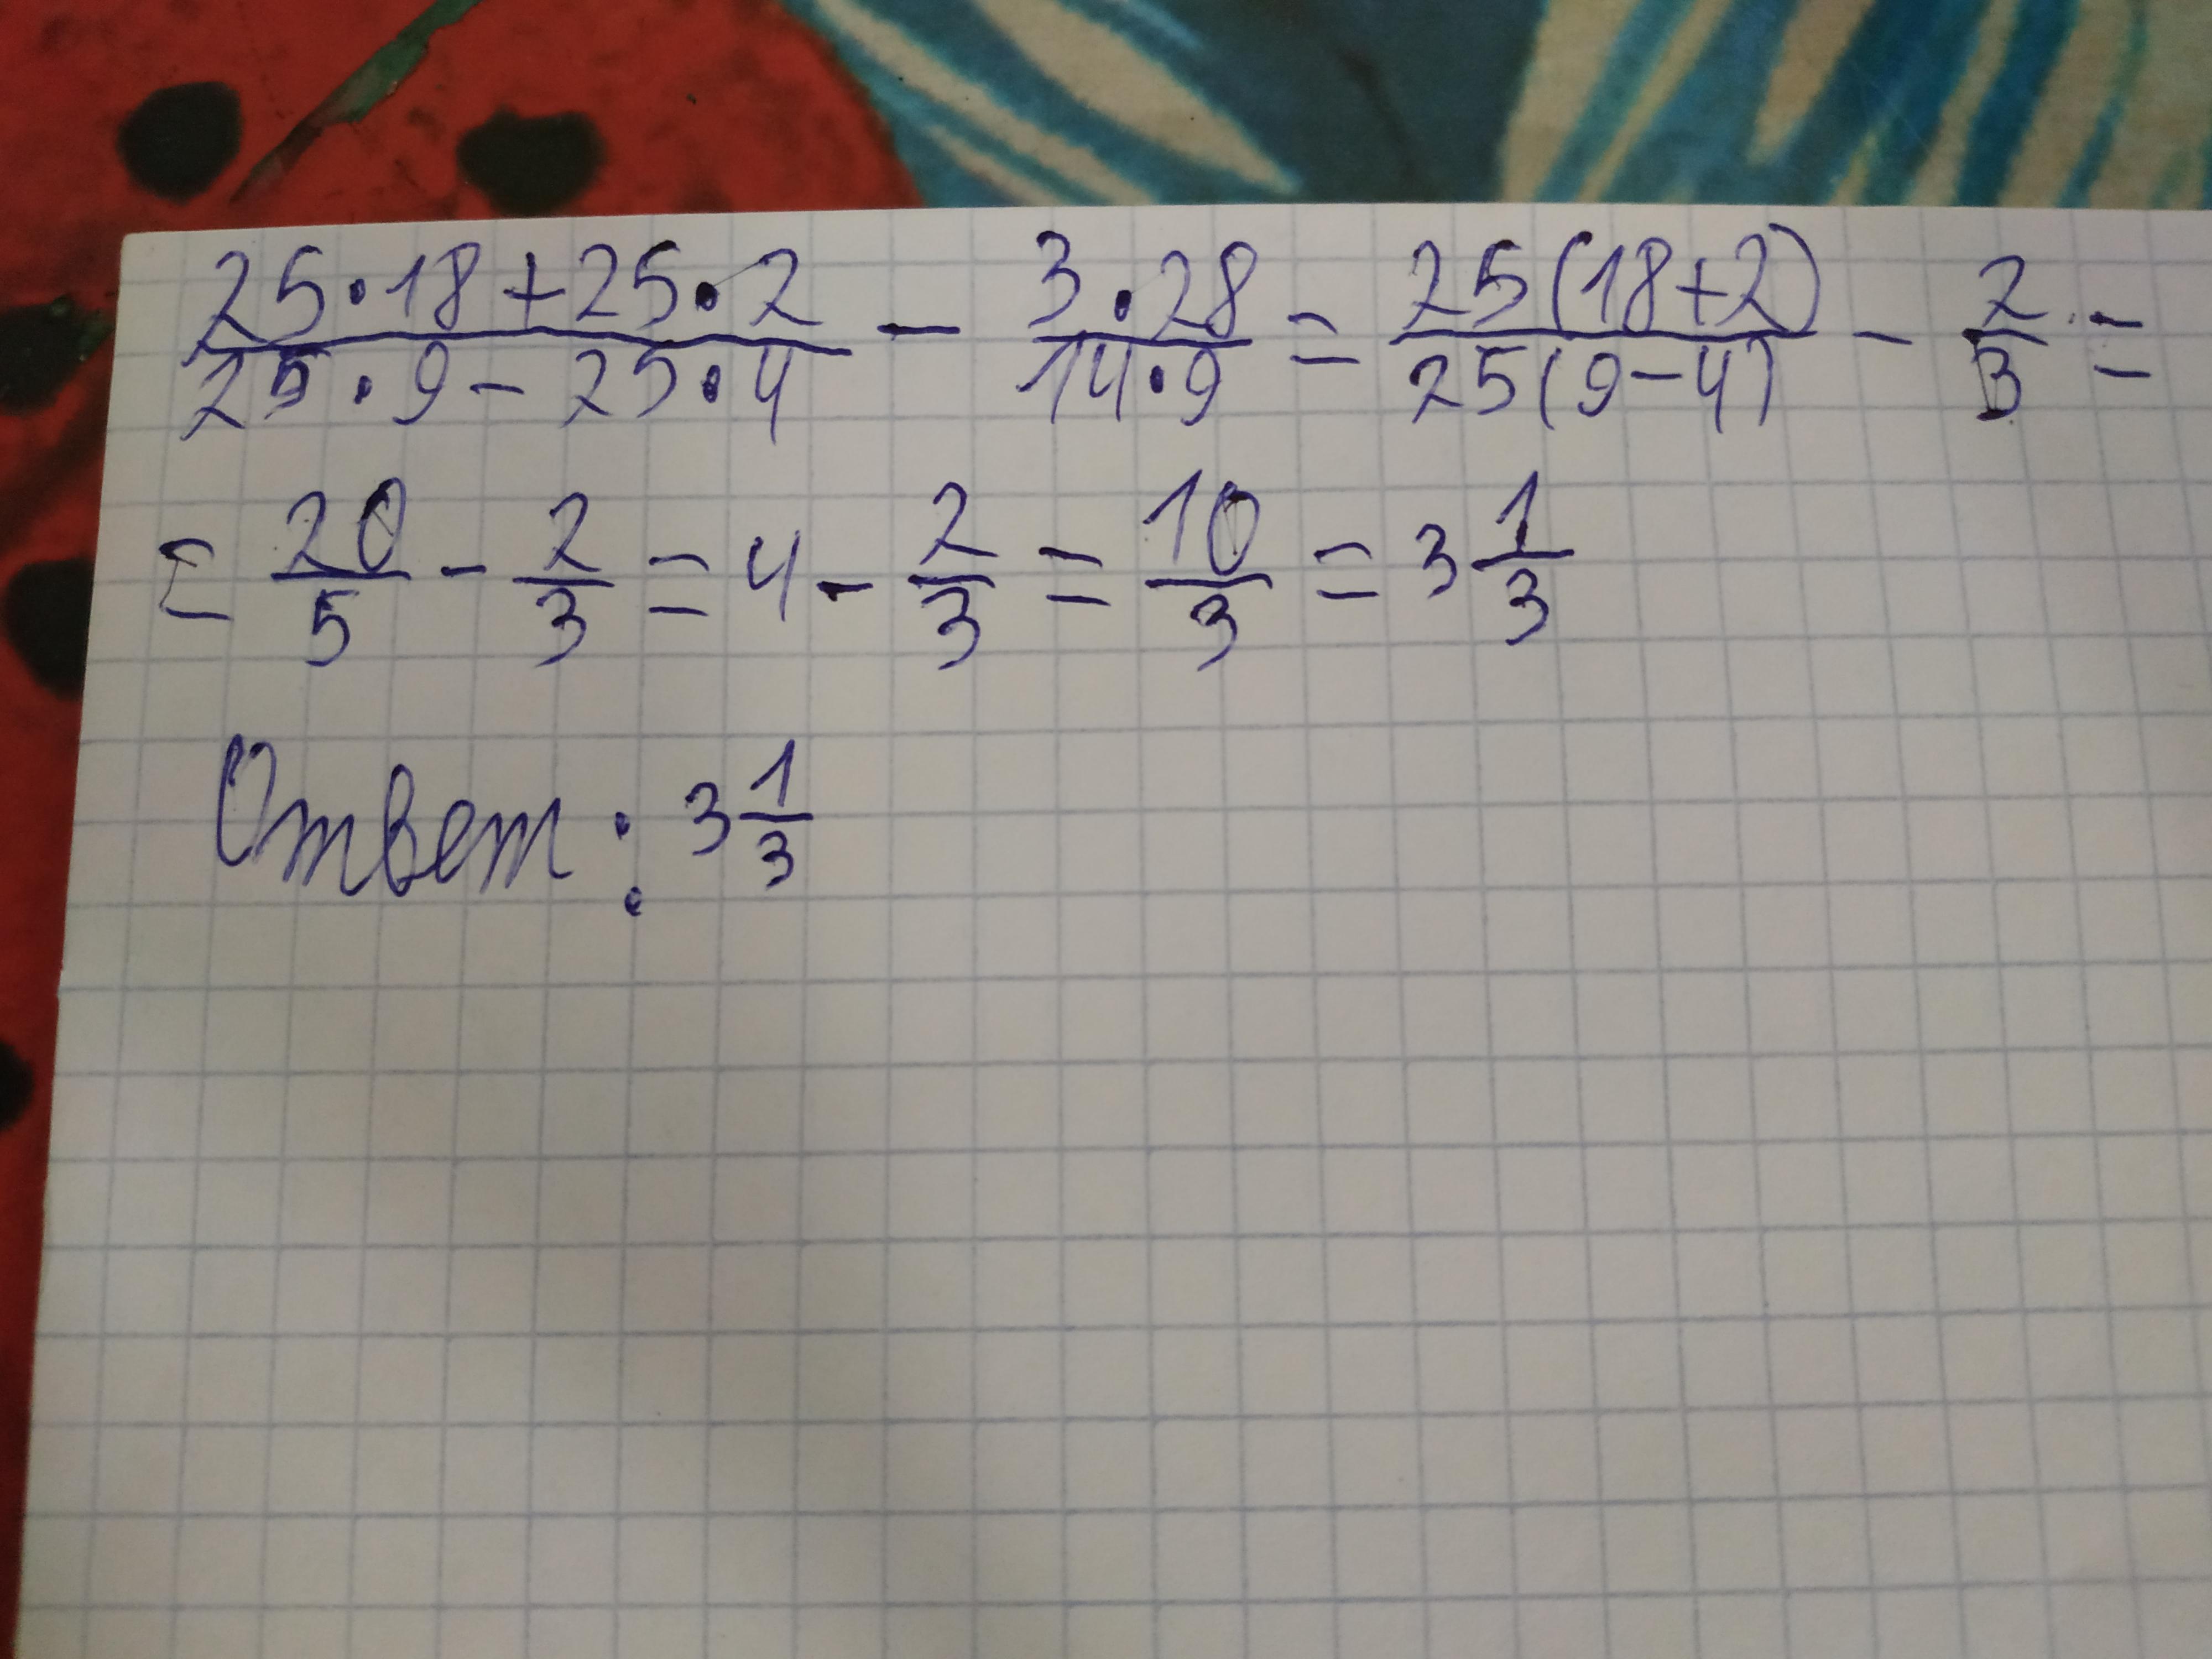 (25·18+25·2)/(25·9-25·4) - (3·28)/(14·9) = (25(18+2))/(25(9-4)) - 2/3 =
= 20/5 - 2/3 = 4 - 2/3 = 10/3 = 3 1/3
Ответ: 3 1/3